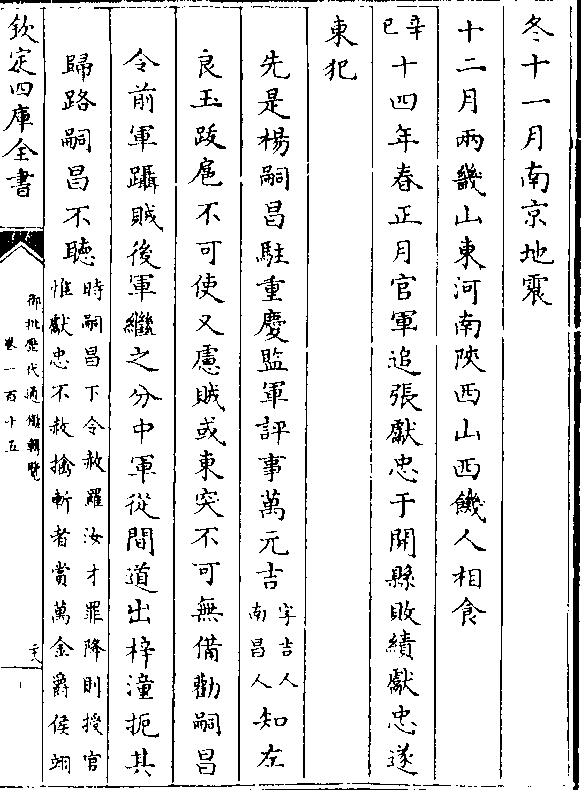 冬十一月南京地震
十二月兩畿山東河南陝西山西饑人相食
辛巳十四年春正月官軍追張獻忠于開縣敗績獻忠遂
東犯
先是楊嗣昌駐重慶監軍評事萬元吉字吉人南昌人知左
良玉跋扈不可使又慮賊或東突不可無備勸嗣昌
令前軍躡賊後軍繼之分中軍從間道出梓潼扼其
歸路嗣昌不聽時嗣昌下令赦羅汝才罪降則授官
惟獻忠不赦擒斬者賞萬金爵侯翊
欽定四庫全書
御批歷代通鑑輯覽
卷一百十五